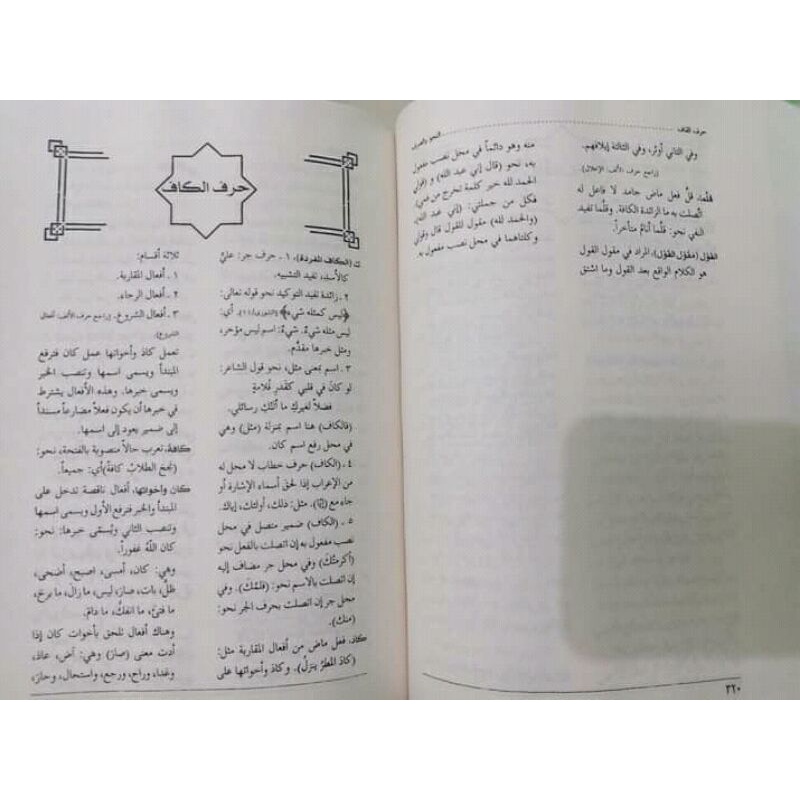 حرف القاف
النحو والصرف
وفي الثاني أوثر، وفي الثالثة إيلافهم.
(راجع حرف الألف: الإعلال)
قلّما، قلَّ فعل ماض جامد لا فاعل له
اتّصلت به ما الزائدة الكافة. وقلّما تفيد
النفي نحو: قلّما أنامُ متأخراً.
القوْل (مقوْل القوْل)، المراد في مقول القول
هو الكلام الواقع بعد القول وما اشتق
منه وهو دائماً في محل نصب مفعول
به، نحو (قال إني عبد الله) و (قولي
الحمد لله خير كلمة تخرج من فمي)
فكل من جملتي: (إني عبد الله،
(والحمد لله) مقول للقول قال وقولي
وكلتاهما في محل نصب مفعول به
٣٢٠
حرف الكاف
ك (الكاف المفردة)، ١ ـ حرف جر: عليٌّ
كالأسدِ، تفيد التشبيه.
٢ ـ زائدة تفيد التوكيد نحو قوله تعالى:
﴿ليس كمثله شيء﴾ (الشورى/١١). أي:
ليس مثله شيءٌ. شيءٌ: اسم ليس مؤخر،
ومثل خبرها مقدَّم.
٣ ـ اسم بمعنى مثل، نحو قول الشاعر:
لو كانَ في قلبي كقَدرِ قُلامةٍ
فضلاً لغيركِ ما أتتْكِ رسائلي
(فالكاف) هنا اسم بمنزلة (مثل) وهي
في محل رفع اسم كان.
٤ ـ (الكاف) حرف خطاب لا محل له
من الإعراب إذا لحق أسماء الإشارة أو
جاء مع (إيّا). مثل: ذلك، أولئك، إياك.
٥ ـ (الكاف) ضمير متصل في محل
نصب مفعول به إن اتصلت بالفعل نحو
(أكرمتُكَ) وفي محل جر مضاف إليه
إن اتصلت بالاسم نحو: (قلمُكَ). وفي
محل جر إن اتصلت بحرف الجر نحو:
(منك).
كادَ، فعل ماض من أفعال المقاربة مثل:
(كادَ المطرُ ينزلُ). وكادَ وأخواتها على
ثلاثة أقسام:
١ ـ أفعال المقاربة.
٢ ـ أفعال الرجاء.
٣ ـ أفعال الشروع. (راجع حرف الألف: أفعال
الشروع).
تعمل كادَ وأخواتها عمل كان فترفع
المبتدأ ويسمى اسمها وتنصب الخبر
ويسمى خبرها. وهذه الأفعال يشترط
في خبرها أن يكون فعلاً مضارعاً مسنداً
إلى ضمير يعود إلى اسمها.
كافة، تعرب حالاً منصوبة بالفتحة، نحو:
(نجحَ الطلابُ كافةً) أي: جميعاً.
كان وأخواتها، أفعال ناقصة تدخل على
المبتدأ والخبر فترفع الأول ويسمى اسمها
وتنصب الثاني ويُسمّى خبرها: نحو:
كان اللّهُ غفوراً.
وهي: كان، أمسى، اصبح، أضحى،
ظلَّ، بات، صارَ، ليس، ما زالَ، ما برحَ،
ما فتئَ، ما انفكَّ، ما دامَ.
وهناك أفعال تلحق بأخوات كان إذا
أدت معنى (صارَ) وهي: آضَ، عادَ،
وغدا، وراح، ورجع، واستحال، وحارَ،